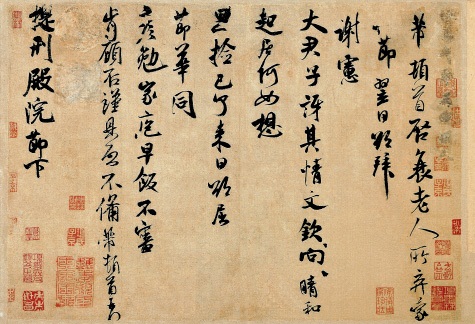 芾頓首啓衰老人所弃蒙
節翌日欲拜
謝憲
大君子訝其情文欽向晴和
起居何如想
已了来日欲屈
節華同
彥勉家庭早飯不審
肯顧否謹具啓不備芾頓首
提刑殿院節下